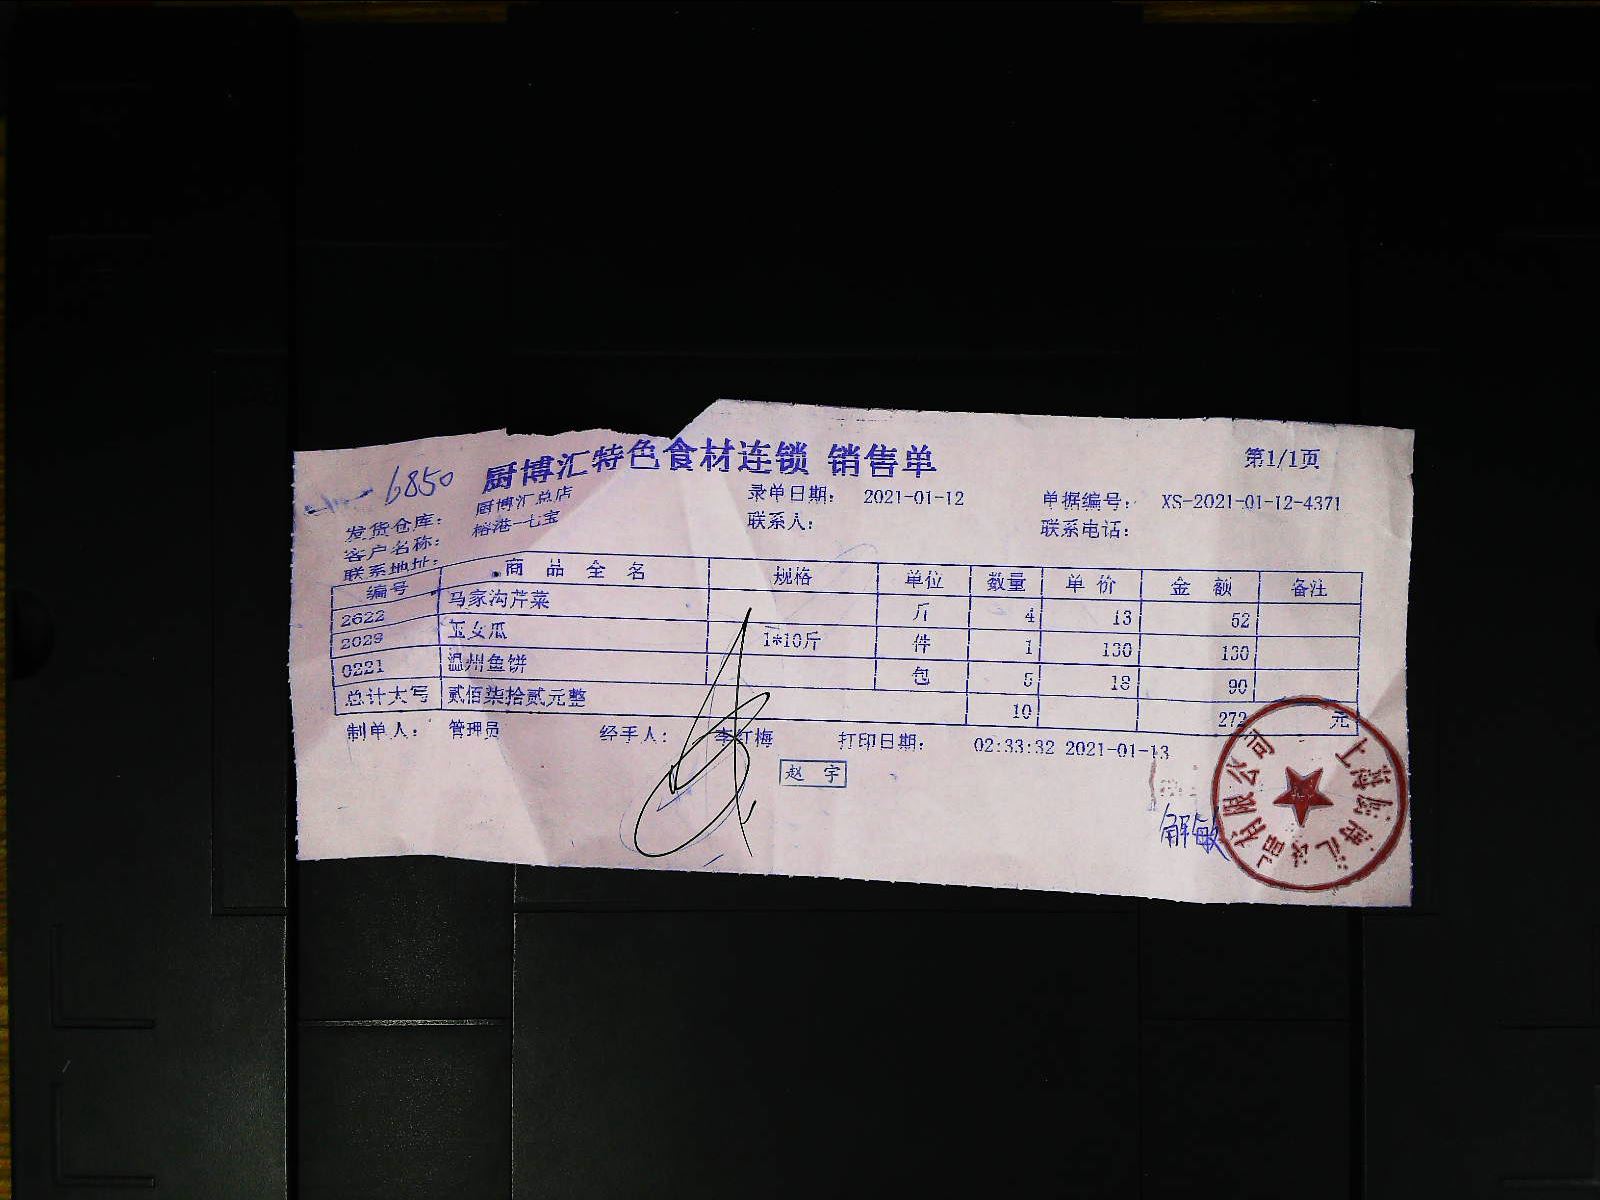 厨博汇特色食材连锁 销售单
第1/1页
6850
发货仓库: 厨博汇总店 录单日期: 2021-01-12 单据编号: XS-2021-01-12-4371
客户名称: 榕港-七宝 联系人: 联系电话:
联系地址:
编号 商品全名 规格 单位 数量 单价 金额 备注
2622 马家沟芹菜 斤 4 13 52
2029 玉女瓜 1*10斤 件 1 130 130
0221 温州鱼饼 包 5 18 90
总计大写 贰佰柒拾贰元整 10 272 元
制单人: 管理员 经手人: 李红梅 打印日期: 02:33:32 2021-01-13
赵宇
解敏